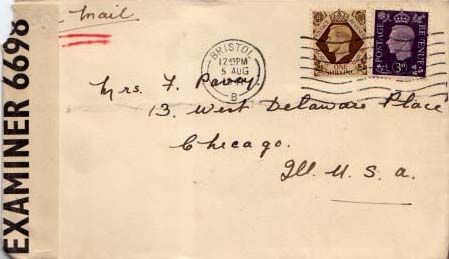 Mail
EXAMINER 6698
BRISTOL
12 45 PM
5 AUG
B
ONE SHILLING
POSTAGE REVENUE
3D
Mrs. F.
13. West Delaware Place
Chicago.
Ill. U. S. a.